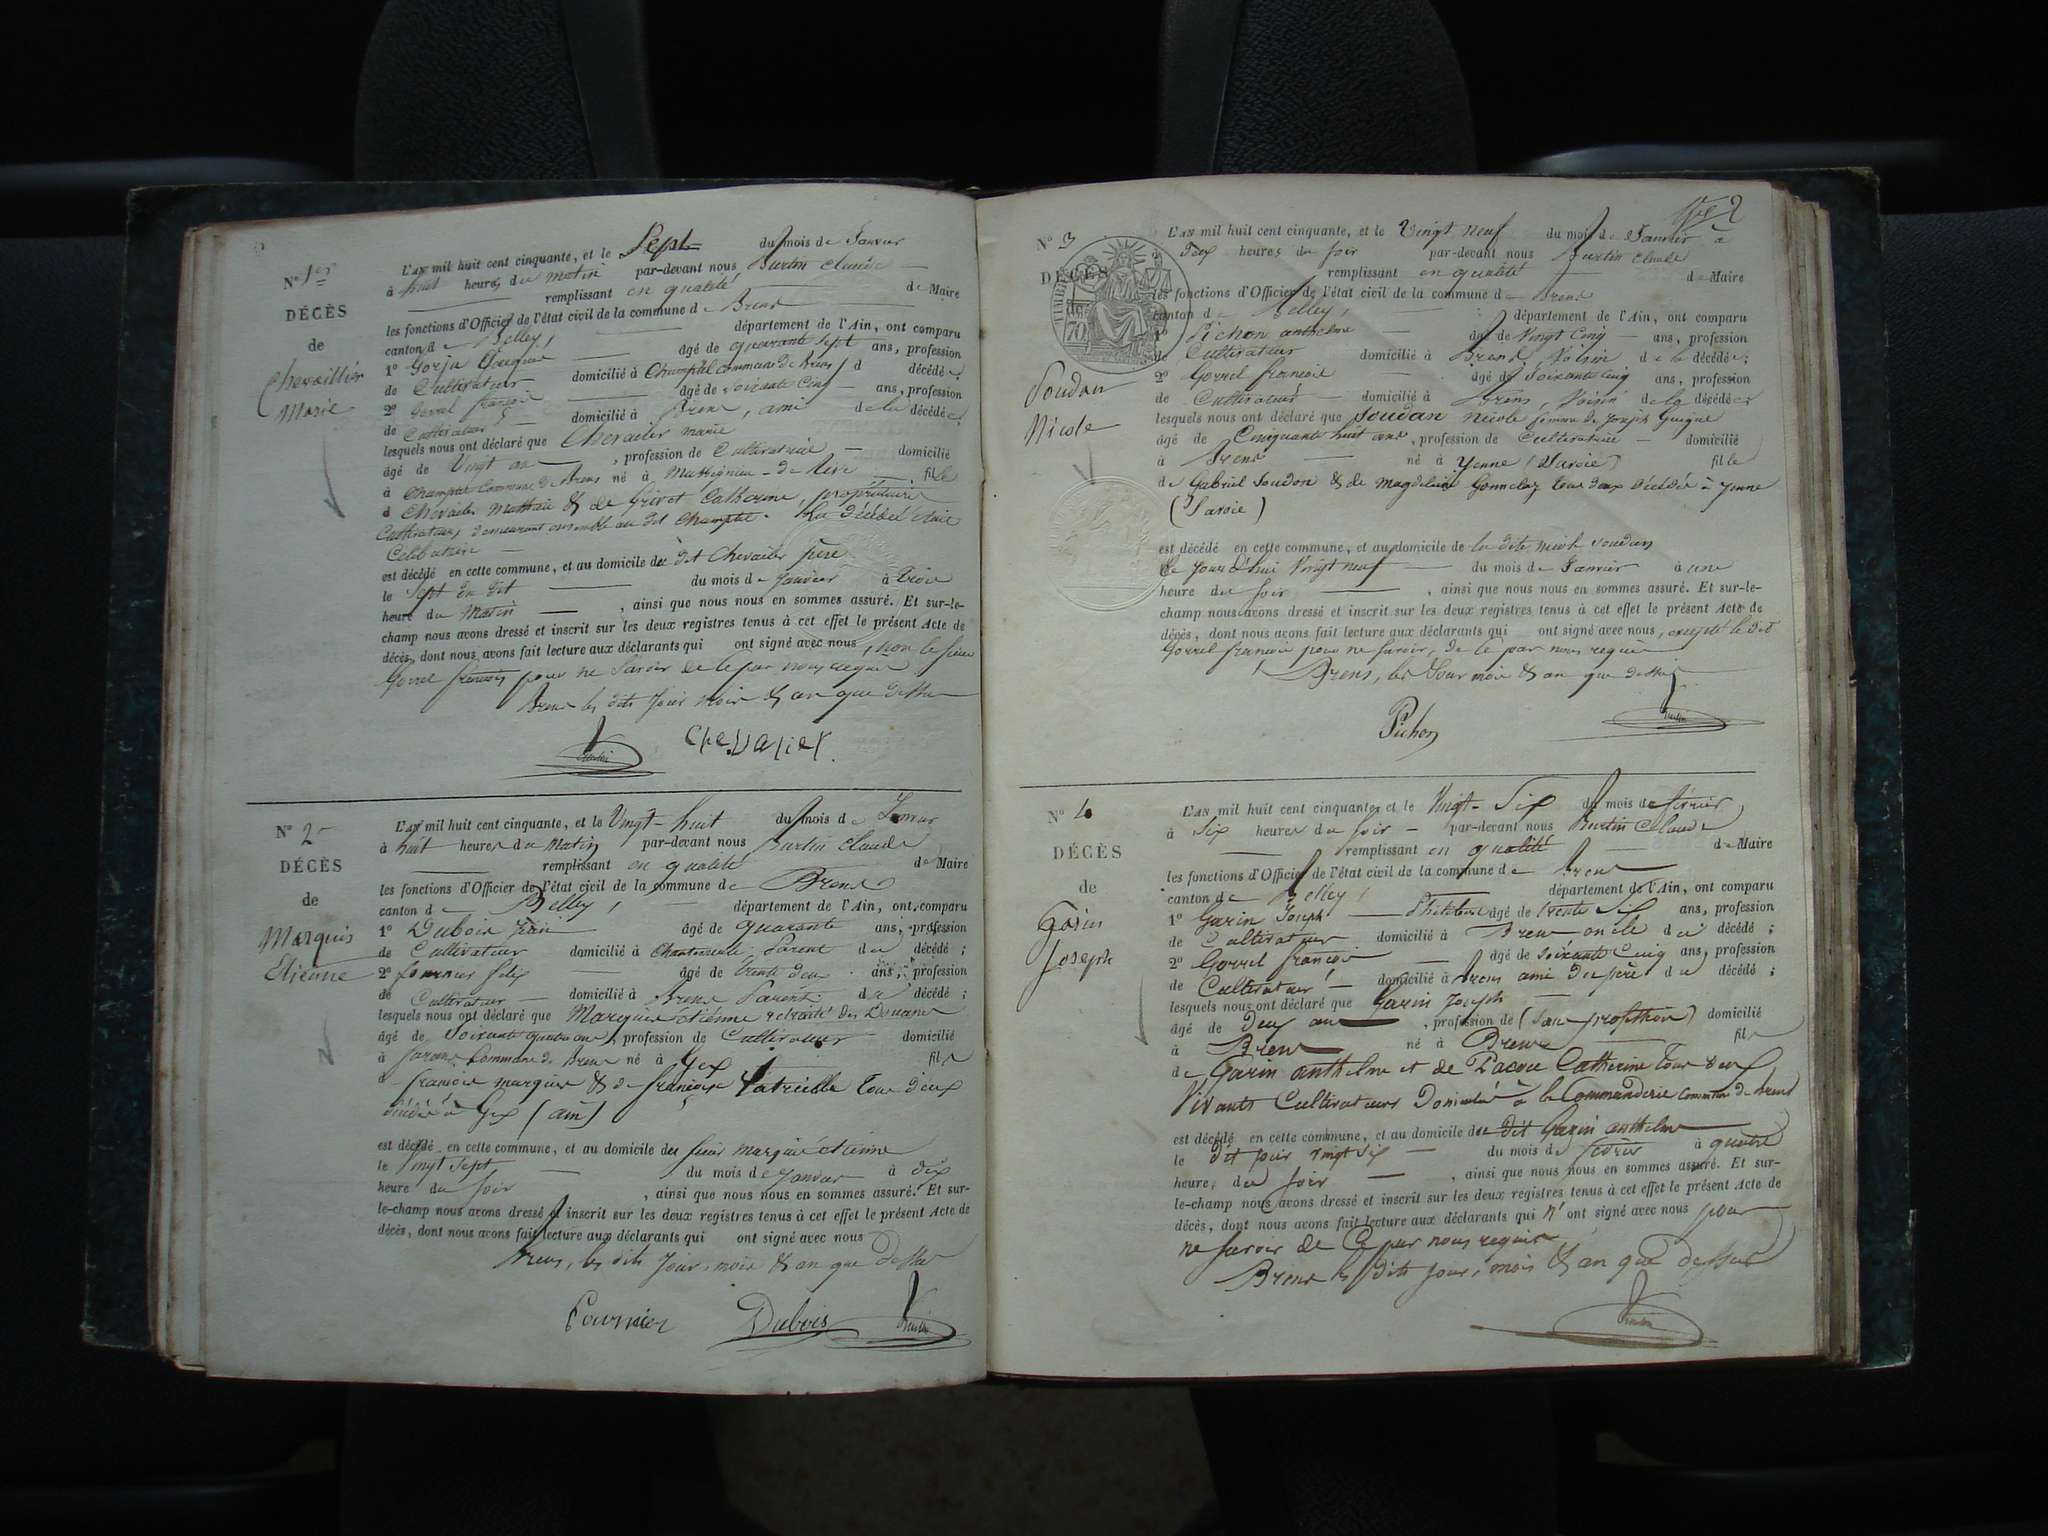 N° 1er
DÉCÈS
de
Chevaillier
Marie
L'AN mil huit cent cinquante, et le Sept du mois de Janvier
à huit heures du matin par-devant nous Burtin Claude
remplissant en qualité de Maire
les fonctions d'Officier de l'état civil de la commune de Brens
canton de Belley, département de l'Ain, ont comparu
1° Gorju âgé de quarante sept ans, profession
de Cultivateur domicilié à Champtel Commune de Brens, d décédé;
2° Gorrel françois âgé de soixante cinq ans, profession
de Cultivateur domicilié à Brens, ami de la décédée;
lesquels nous ont déclaré que Chevalier marie
âgé de Vingt an, profession de Cultivatrice domicilié
à Champtel Commune de Brens né à Massignieu-de Rive fille
d Chevalier Mathieu & de Grivet Catherine, propriétaires
Cultivateurs, demeurant ensemble au dit Champtel. La décédée était
Célibataire
est décédé en cette commune, et au domicile du dit Chevalier père
le Sept du dit du mois de Janvier à trois
heure du Matin, ainsi que nous nous en sommes assuré. Et sur-le-
champ nous avons dressé et inscrit sur les deux registres tenus à cet effet le présent Acte de
décès, dont nous avons fait lecture aux déclarants qui ont signé avec nous, non le sieur
Gorrel françois pour ne Savoir de le par nous requis
Brens les dits Jour mois & an que dessus
Burtin CHEVALIER
N° 2
DÉCÈS
de
Marquis
Etienne
L'AN mil huit cent cinquante, et le Vingt-huit du mois de Janvier
à huit heures du Matin par-devant nous Burtin Claude
remplissant en qualité de Maire
les fonctions d'Officier de l'état civil de la commune de Brens
canton de Belley, département de l'Ain, ont comparu
1° Dubois Jean âgé de quarante ans, profession
de Cultivateur domicilié à Parent du décédé;
2° fournier felix âgé de trente deux ans, profession
de Cultivateur domicilié à Brens Parent du décédé;
lesquels nous ont déclaré que Marquis étienne retraité des Douanes
âgé de Soixante quatre ans, profession de Cultivateur domicilié
à Commune de Brens né à Gex fils
d françois marquis & de françoise tous deux
décédés à Gex (ain)
est décédé en cette commune, et au domicile du sieur marquis étienne
le Vingt sept du mois de Janvier à dix
heure du Soir, ainsi que nous nous en sommes assuré. Et sur-
le-champ nous avons dressé et inscrit sur les deux registres tenus à cet effet le présent Acte de
décès, dont nous avons fait lecture aux déclarants qui ont signé avec nous
Brens, les dits Jour, mois & an que dessus
Fournier Dubois Burtin
2
N° 3
DÉCÈS
de
Soudan
Nicole
TIMBRE
70
L'AN mil huit cent cinquante, et le Vingt neuf du mois de Janvier à
deux heures du Soir par-devant nous Burtin Claude
remplissant en qualité de Maire
les fonctions d'Officier de l'état civil de la commune de Brens
canton de Belley, département de l'Ain, ont comparu
1° Pichon anthelme âgé de Vingt Cinq ans, profession
de Cultivateur domicilié à Brens, Voisin de la décédée;
2° Gorrel francois âgé de Soixante cinq ans, profession
de Cultivateur domicilié à Brens, Voisin de la décédée;
lesquels nous ont déclaré que Soudan Nicole femme de Joseph
âgé de Cinquante huit ans, profession de Cultivatrice domicilié
à Brens né à Yenne (Savoie) fille
de Gabriel Soudan & de Magdelaine tous deux décédés à Yenne
(Savoie)
est décédé en cette commune, et au domicile de la dite nicole soudan
le Jour d'hui Vingt neuf du mois de Janvier à une
heure du Soir, ainsi que nous nous en sommes assuré. Et sur-le-
champ nous avons dressé et inscrit sur les deux registres tenus à cet effet le présent Acte de
décès, dont nous avons fait lecture aux déclarants qui ont signé avec nous, excepté le dit
Gorrel francois pour ne Savoir, de le par nous requis
Brens, les Jour mois & an que dessus
Pichon Burtin
N° 4
DÉCÈS
de
Garin
Joseph
L'AN mil huit cent cinquante, et le Vingt-Six du mois de février
à Six heures du Soir par-devant nous Burtin Claude
remplissant en qualité de Maire
les fonctions d'Officier de l'état civil de la commune de Brens
canton de Belley, département de l'Ain, ont comparu
1° Garin Joseph âgé de trente Six ans, profession
de Cultivateur domicilié à Brens oncle du décédé;
2° Gorrel françois âgé de Soixante Cinq ans, profession
de Cultivateur domicilié à Brens ami du père du décédé;
lesquels nous ont déclaré que Garin Joseph
âgé de deux ans, profession de (Sans profession) domicilié
à Brens né à Brens fils
de Garin anthelme et de Pacou Catherine tous deux
Vivants Cultivateurs Domiciliés à la Commanderie Commune de Brens
est décédé en cette commune, et au domicile du dit Garin anthelme
le dit jour vingt six du mois de février à quatre
heure, du Soir, ainsi que nous nous en sommes assuré. Et sur-
le-champ nous avons dressé et inscrit sur les deux registres tenus à cet effet le présent Acte de
décès, dont nous avons fait lecture aux déclarants qui n'ont signé avec nous pour
ne Savoir de Ce par nous requis
Brens les dits Jour, mois & an que dessus
Burtin